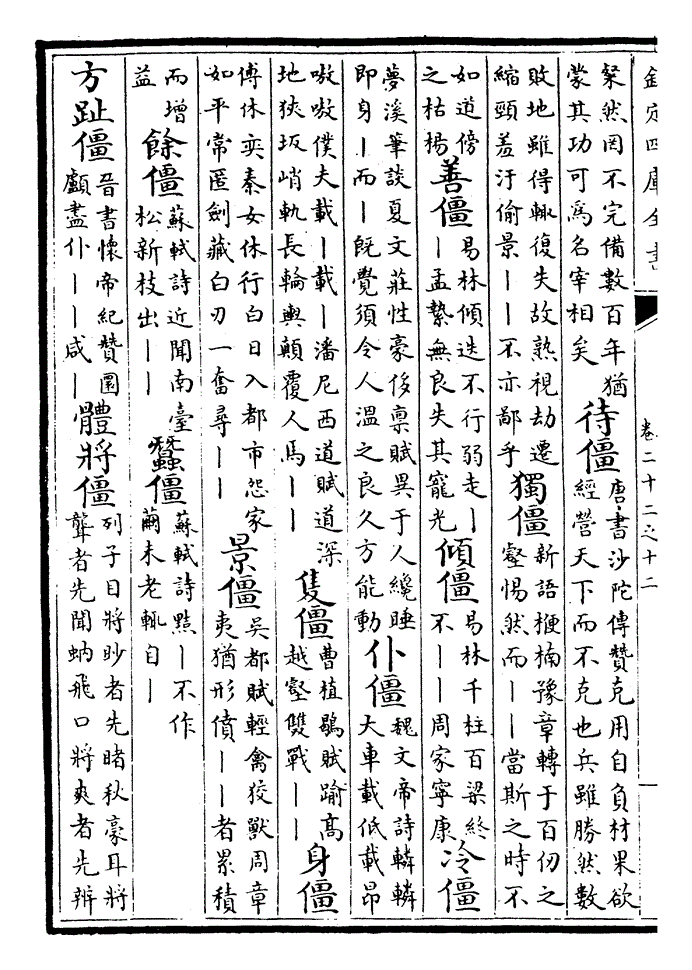 欽定四庫全書
卷二十二之十二
粲然罔不完備數百年猶
蒙其功可為名宰相矣
待僵
唐書沙陀傳贊克用自負材果欲
經營天下而不克也兵雖勝然數
敗地雖得輙復失故熟視劫遷
縮頸羞汙偷景||不亦鄙乎
獨僵
新語楩楠豫章轉于百仞之
壑惕然而||當斯之時不
如道傍
之枯楊
善僵
易林傾迭不行弱走|
|孟縶無良失其寵光
傾僵
易林千柱百梁終
不||周家寧康
冷僵
夢溪筆談夏文莊性豪侈禀賦異于人纔睡
即身|而|既覺須令人溫之良久方能動
仆僵
魏文帝詩轔轔
大車載低載昂
嗷嗷僕夫載|載|潘尼西道賦道深
地狹坂峭軌長輪輿顛覆人馬||
隻僵
曹植鶡賦踰高
越壑雙戰||
身僵
傅休奕秦女休行白日入都市怨家
如平常匿劍藏白刃一奮尋||
景僵
吳都賦輕禽狡獸周章
夷猶形僨||者累積
而增
益
餘僵
蘇軾詩近聞南臺
松新枝出||
蠶僵
蘇軾詩點|不作
繭未老輒自|
方趾僵
晉書懷帝紀贊圜
顱盡仆||咸|
體將僵
列子目將眇者先睹秋豪耳將
聾者先聞蚋飛口將爽者先辨